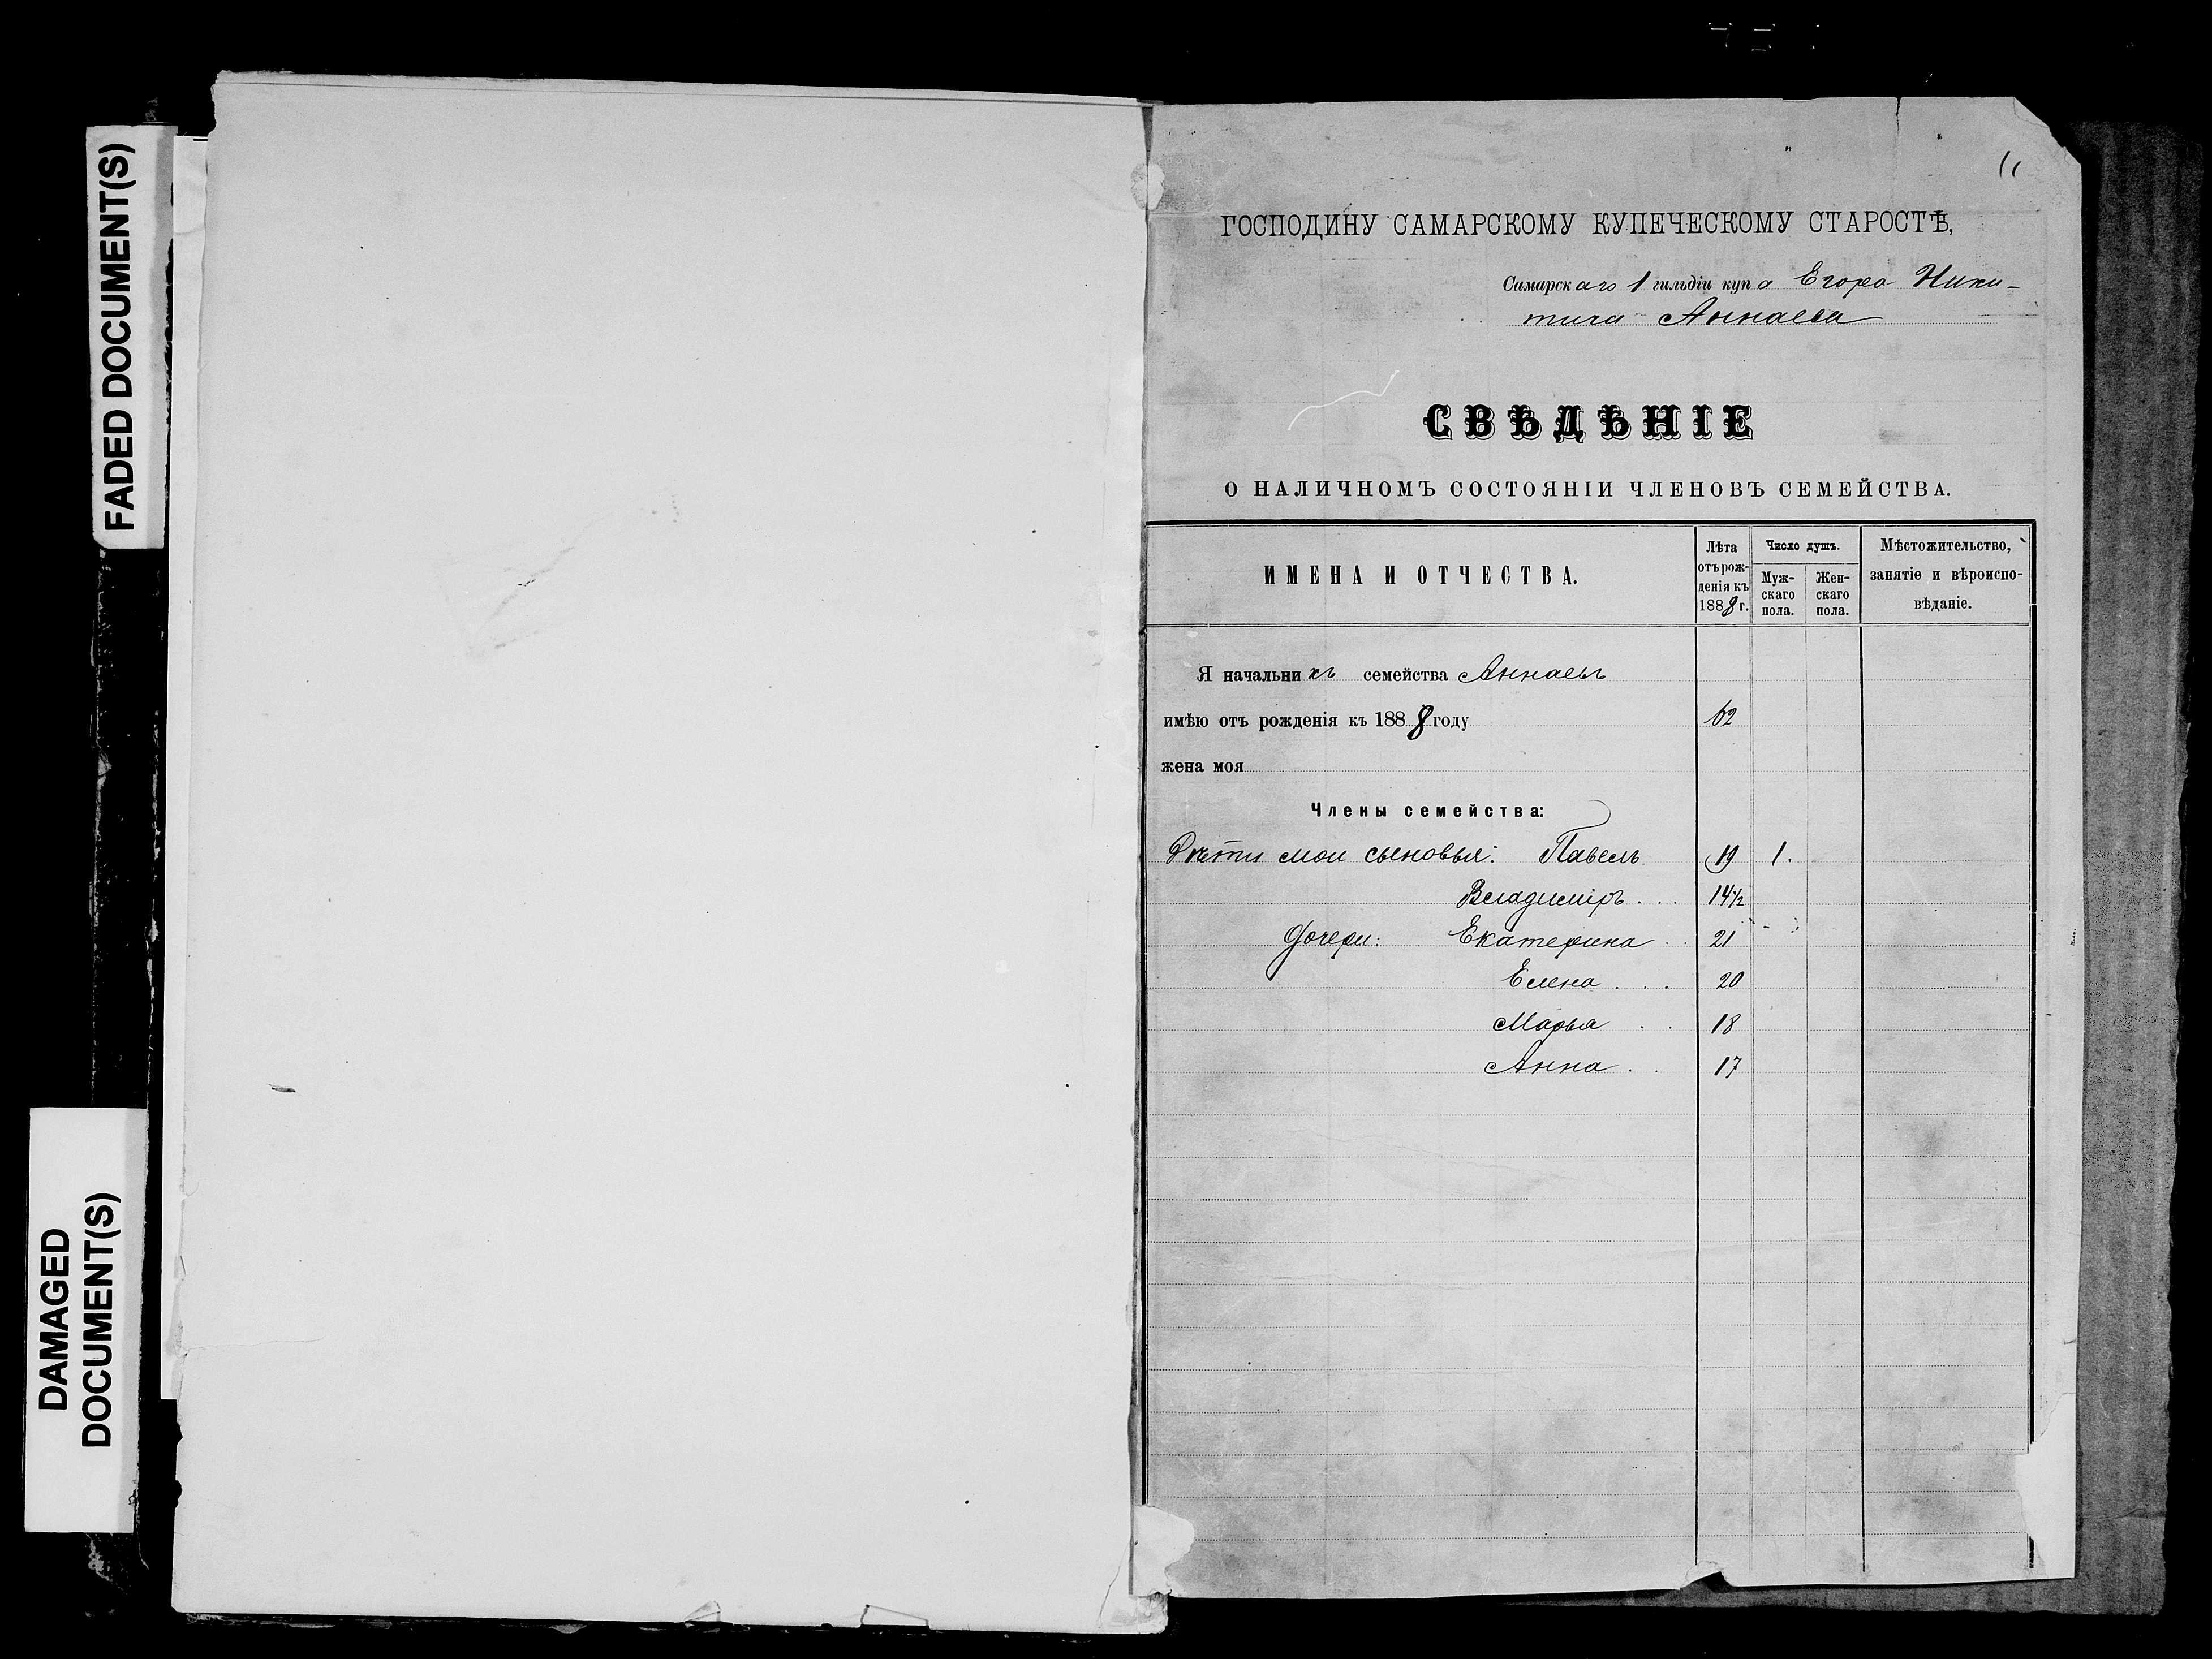 FADED DOCUMENT(S)
DAMAGED
DOCUMENT(S)
11
ГОСПОДИНУ САМАРСКОМУ КУПЕЧЕСКОМУ СТАРОСТѢ,
Самарскаго 1 гильдіи купа Егора Ники-
тича Аннаева
СВѢДѢНІЕ
О НАЛИЧНОМЪ СОСТОЯНІИ ЧЛЕНОВЪ СЕМЕЙСТВА.
ИМЕНА И ОТЧЕСТВА.
Лѣта
отъ рож-
денія къ
1888 г.
Число душъ.
Муж-
скаго
пола.
Жен-
скаго
пола.
Мѣстожительство,
занятіе и вѣроиспо-
вѣданіе.
Я начальникъ семейства Аннаевъ
имѣю отъ рожденія къ 1888 году 62
жена моя
Члены семейства:
Дѣти мои сыновья: Павелъ 19 1.
Владиміръ . . . 14 1/2
Дочери: Екатерина . . 21
Елена . . . 20
Марья . . 18
Анна . . 17